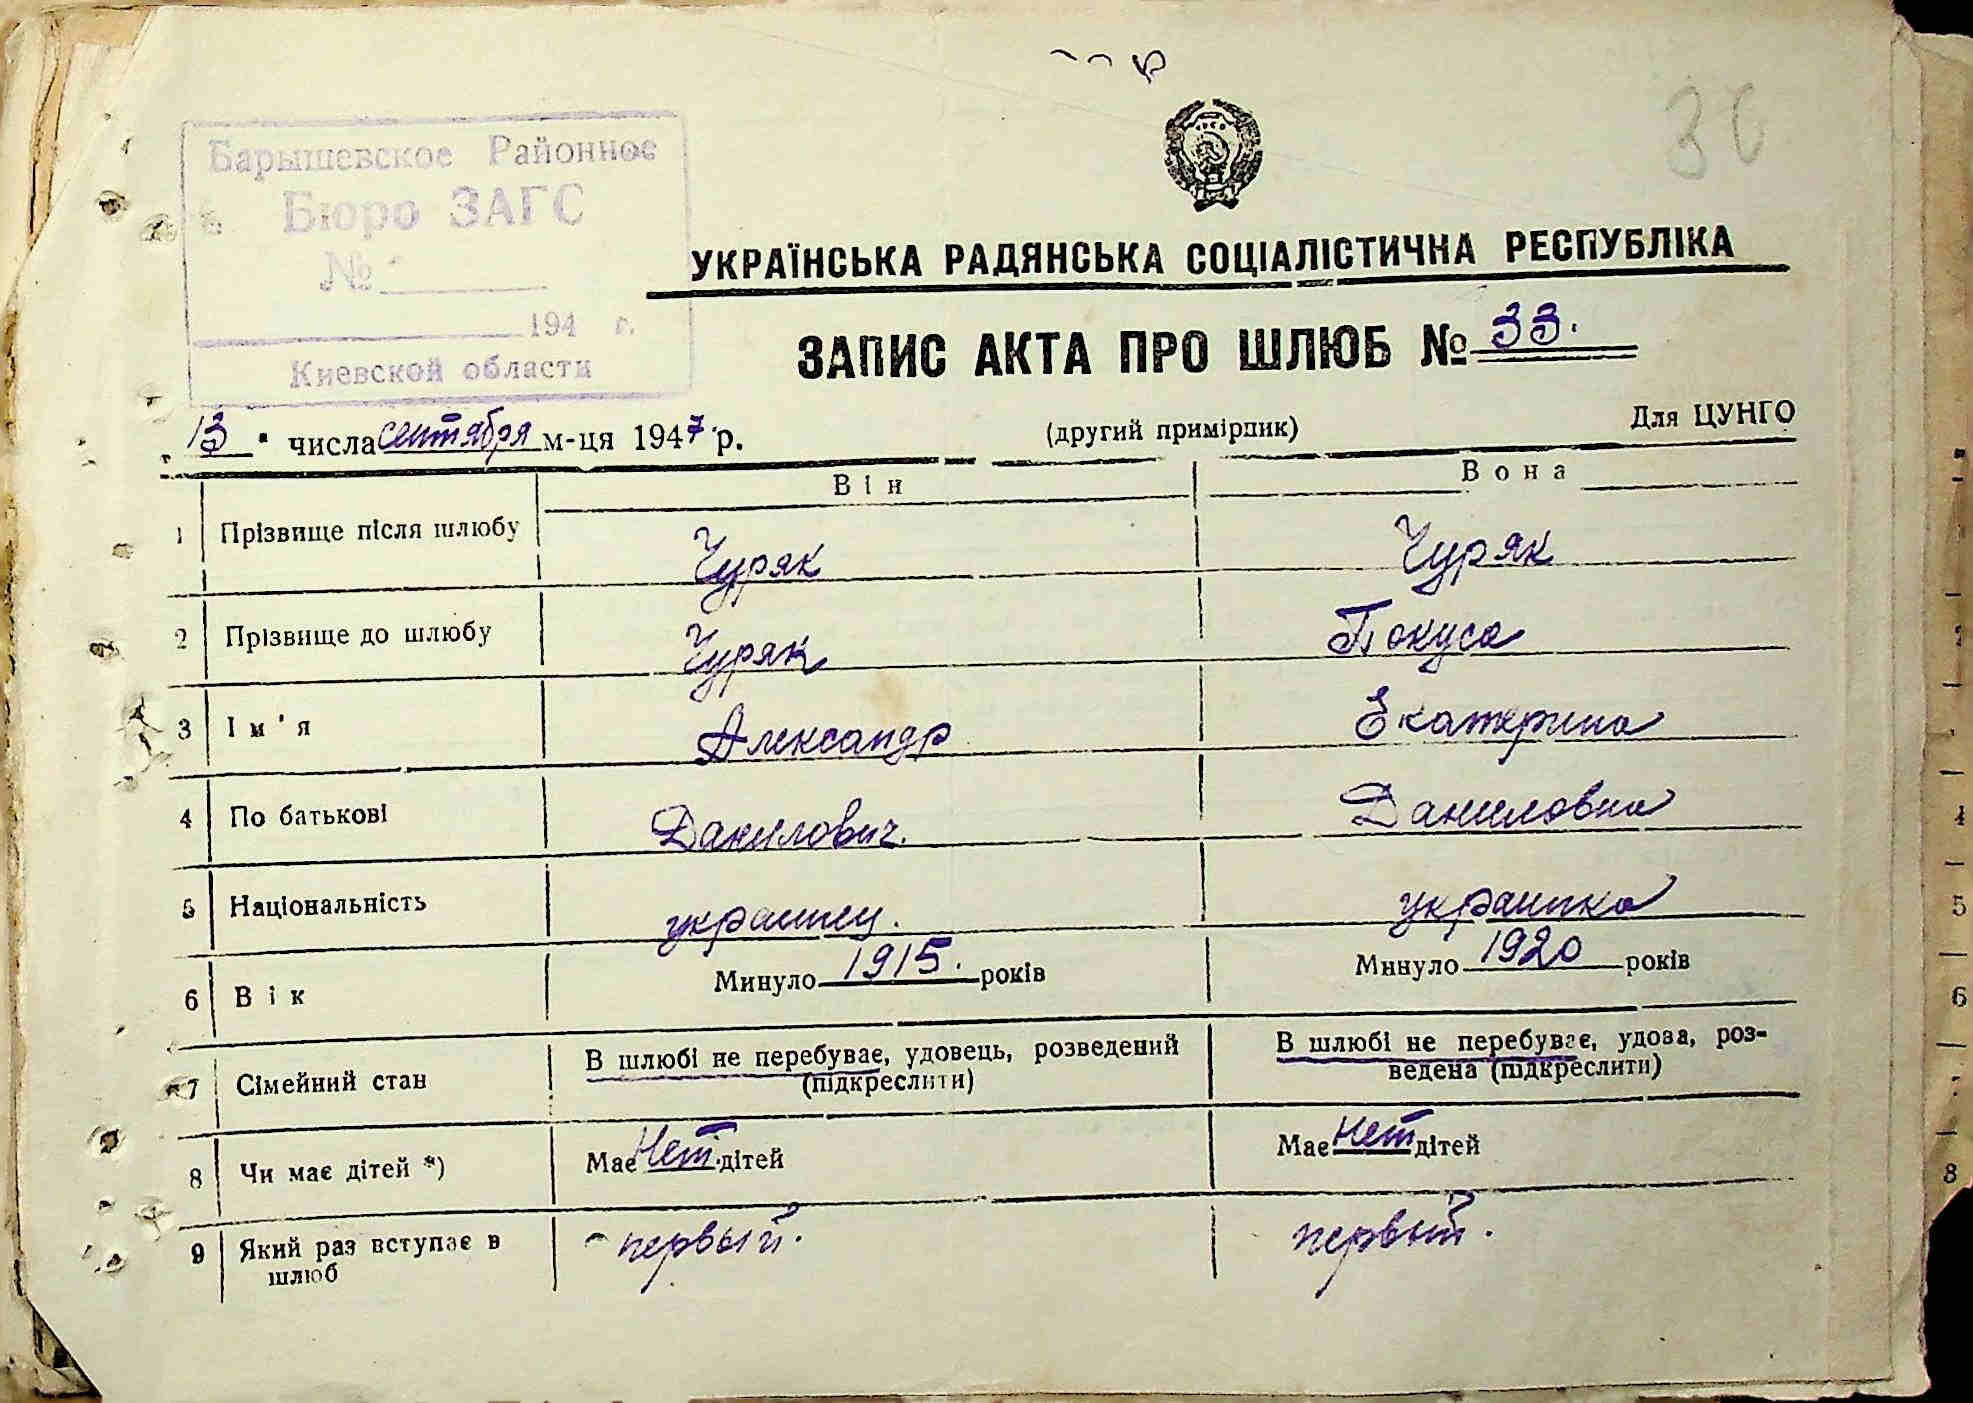 30
Барышевское Районное
Бюро ЗАГС
№
194 г.
Киевской области
УКРАЇНСЬКА РАДЯНСЬКА СОЦІАЛІСТИЧНА РЕСПУБЛІКА
ЗАПИС АКТА ПРО ШЛЮБ № 33.
13 " числа сентября м-ця 1947 р.
(другий примірник)
Для ЦУНГО
Він Вона
1 Прізвище після шлюбу Чуряк Чуряк
2 Прізвище до шлюбу Чуряк Покуса
3 Ім'я Александр Екатерина
4 По батькові Данилович. Даниловна
5 Національність украинец. украинка
6 Вік Минуло 1915. років Минуло 1920 років
7 Сімейний стан В шлюбі не перебуває, удовець, розведений (підкреслити) В шлюбі не перебуває, удова, роз-
ведена (підкреслити)
8 Чи має дітей *) Має Нет. дітей Має нет дітей
9 Який раз вступає в первый. первый.
шлюб
4
5
6
8